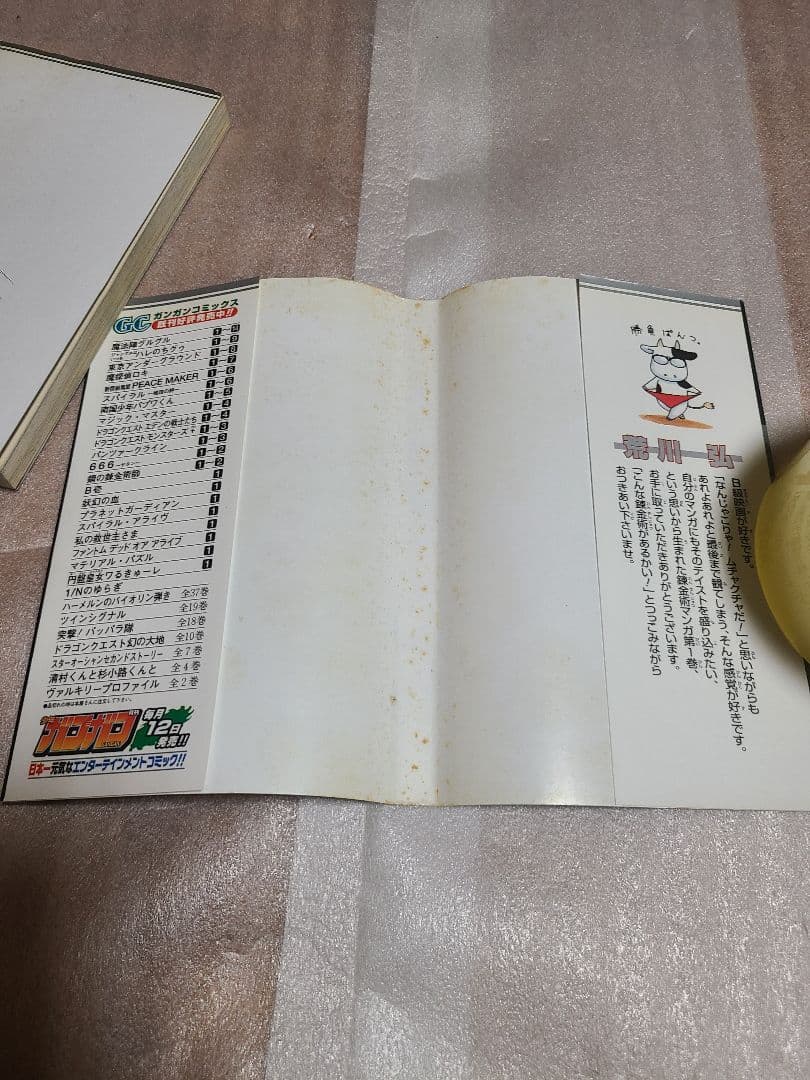 GC ガンガンコミックス
既刊好評発売中!!
魔法陣グルグル 1〜
ハレのちグゥ 1〜9
東京アンダーグラウンド 1〜8
魔探偵ロキ 1〜7
PEACE MAKER 1〜6
スパイラル 1〜6
南国少年パプワくん 1〜5
マジック・マスター 1〜4
ドラゴンクエスト エデンの戦士たち 1〜4
ドラゴンクエスト モンスターズ+ 1〜3
パンツァークライン 1〜3
666 1〜2
鋼の錬金術師 1
B壱 1
妖幻の血 1
プラネットガーディアン 1
スパイラル・アライヴ 1
私の救世主さま 1
ファントム デッド オア アライブ 1
マテリアル・パズル 1
円盤皇女ワるきゅーレ 1
1/Nのゆらぎ
ハーメルンのバイオリン弾き 全37巻
ツインシグナル 全19巻
突撃!パッパラ隊 全18巻
ドラゴンクエスト幻の大地 全10巻
スターオーシャンセカンドストーリー 全7巻
清村くんと杉小路くんと 全4巻
ヴァルキリープロファイル 全2巻
●品切れの時は本屋さんに注文して下さい。
少年ガンガン
毎月12日発売!!
日本一元気なエンターテインメントコミック!!
勝負ぱんつ。
荒川 弘
B級映画が好きです。
「なんじゃこりゃ!ムチャクチャだ!」と思いながらも
あれよあれよと最後まで観てしまう、そんな感覚が好きです。
自分のマンガにもそのテイストを盛り込みたい、
という思いから生まれた錬金術マンガ第1巻、
お手に取っていただきありがとうございます。
「こんな錬金術があるかい!」とつっこみながら
おつきあい下さいませ。